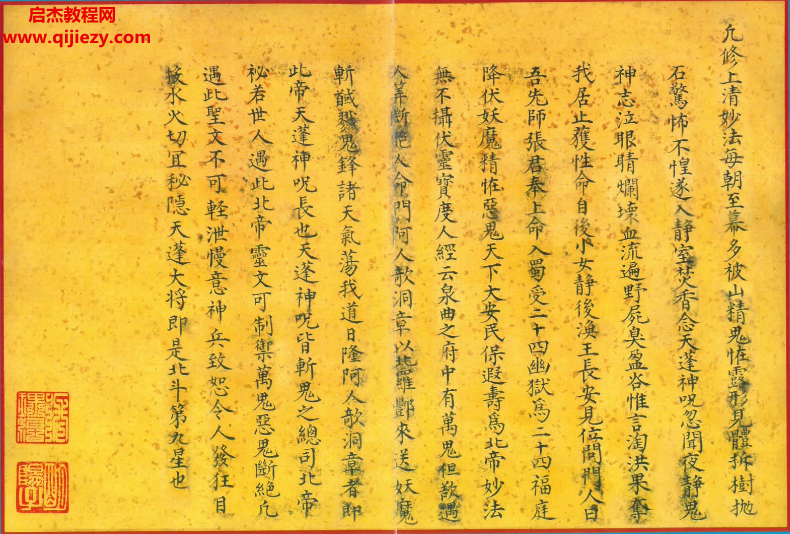 启杰教程网
www.qijiezy.com
凢修上清妙法每朝至幕多被山精鬼恠露形見體拆樹抛
石驚怖不惶遂入靜室焚香念天蓬神呪忽聞夜靜鬼
神志泣眼睛爛壊血流遍野屍臭盈谷惟言淘洪果奪
我居止獲性命自後小女靜後渙王長安見位問門人曰
吾先師張君奉上命入蜀受二十四幽獄爲二十四福庭
降伏妖魔精恠惡鬼天下大安民保遐壽爲北帝妙法
無不攝伏靈寳度人經云泉曲之府中有萬鬼但欲遏
人筭斷絶人命門阿人歌洞章以北羅酆來送妖魔
斬馘戮鬼鋒諸天氣蕩我道日隆阿人歌洞章者即
此帝天蓬神呪長也天蓬神呪皆斬鬼之總司北帝
秘若世人遇此北帝靈文可制禦萬鬼惡鬼斷絶凢
遇此聖文不可軽泄慢意神兵致恕令人發狂目
接水火切宜秘隱天蓬大将即是北斗第九星也